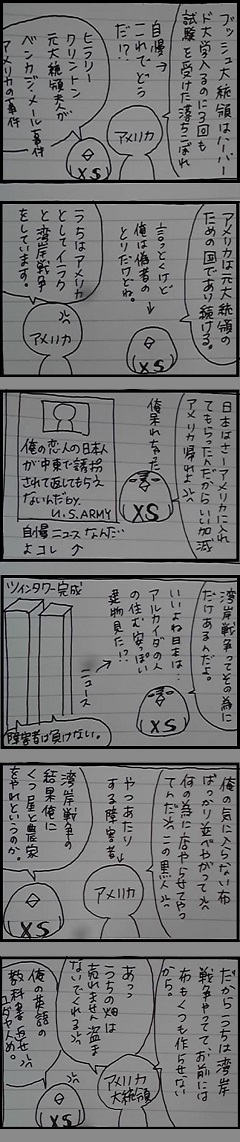 ブッシュ大統領はハーバー
ド大学入るのに3回も
試験を受けた落ちこぼれ
自慢→
これでどう
だ!?
アメリカ
ヒラリー
クリントン
元大統領夫人が
ベンガジ・メール事件
アメリカの事件
XS
アメリカは元大統領の
ための国であり続ける。
言っとくけど
俺は偽者の
とりだけどね。
XS
うちはアメリカ
としてイラク
と湾岸戦争
をしています。
アメリカ
日本はさーアメリカに入れ
てもらったんだからいい加減
アメリカ帰れよ
俺呆れちゃった
XS
俺の恋人の日本人
が中東で誘拐
されて返してもらえ
ないんだby.
U.S.ARMY
自慢ニュースなんだ
よコレ
湾岸戦争ってその為に
だけあるんだよ。
いいよね日本は…
アルカイダの人
の住む安っぽい
建物見た!?
XS
ニュース
ツインタワー完成
障害者は負けない。
俺の気に入らない布
ばっかり並べやがって
何の為に店やらせてやっ
てんだこの黒人
やつあたり
する障害者
アメリカ
湾岸戦争の
結果俺に
くつ屋と農家
をやれというのか。
XS
だからうちは湾岸
戦争やってて、お前には
布もくつも作らせない
から。
あっっ
うちの畑は
売れません盗ま
ないでくれる
アメリカ
大統領
俺の英語の
教科書返せ
ユダヤ人め。
XS